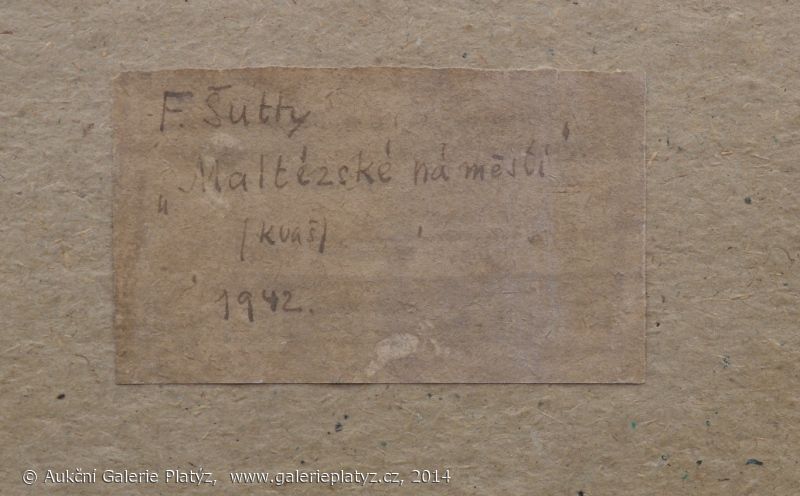 F. Šutty
„Maltézské náměstí"
(kvaš)
1942.
© Aukční Galerie Platýz, www.galerieplatyz.cz, 2014